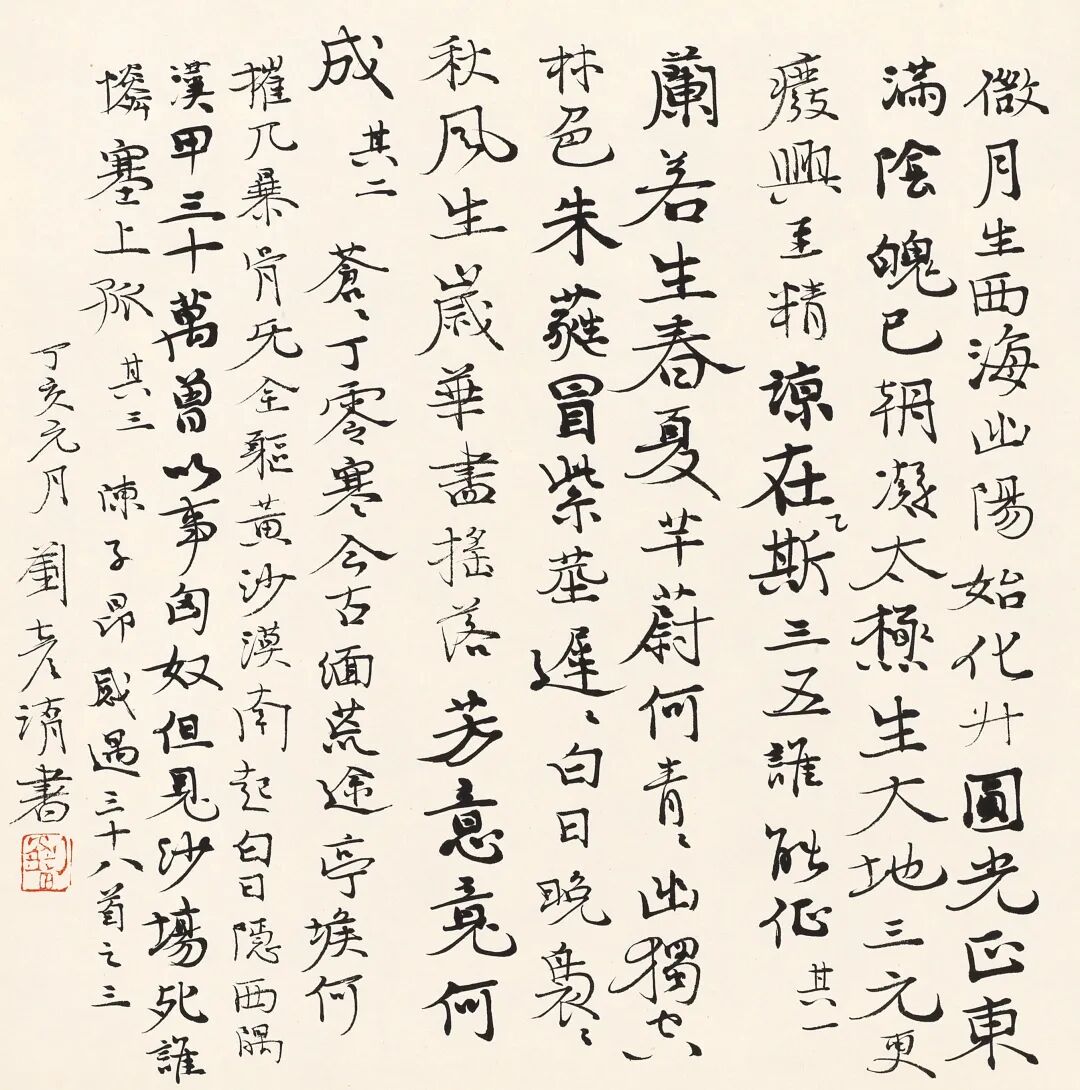 微月生西海幽陽始化升圓光正東
滿陰魄已朝凝太極生大地三元更
癈興至精諒在斯三五誰能征 其一
蘭若生春夏芊蔚何青々幽獨空
林色朱蕤冒紫莖遲々白日晚裊々
秋風生歲華盡搖落芳意竟何
成 其二 蒼々丁零塞今古緬荒途亭堠何
摧兀暴骨无全軀黃沙漠南起白日隱西隅
漢甲三十萬曾以事匈奴但見沙場死誰
憐塞上孤 其三 陳子昂感遇三十八首之三
丁亥元月 劉彥湖書